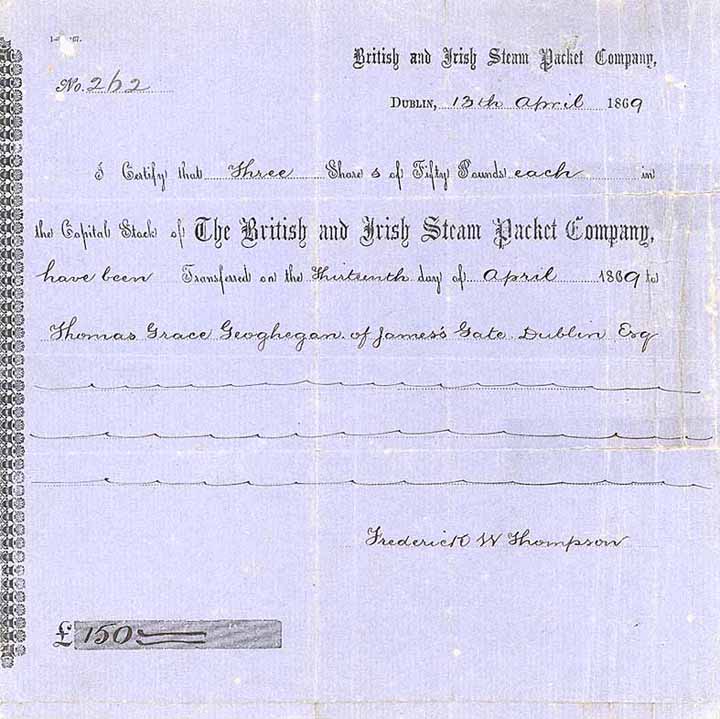 British and Irish Steam Packet Company,
No. 262
Dublin, 13th April 1869
I Certify that Three Shares of Fifty Pounds each in
the Capital Stock of The British and Irish Steam Packet Company,
have been Transferred on the Thirteenth day of April 1869 to
Thomas Grace Geoghegan of James's Gate Dublin Esq
Frederick W Thompson
£150